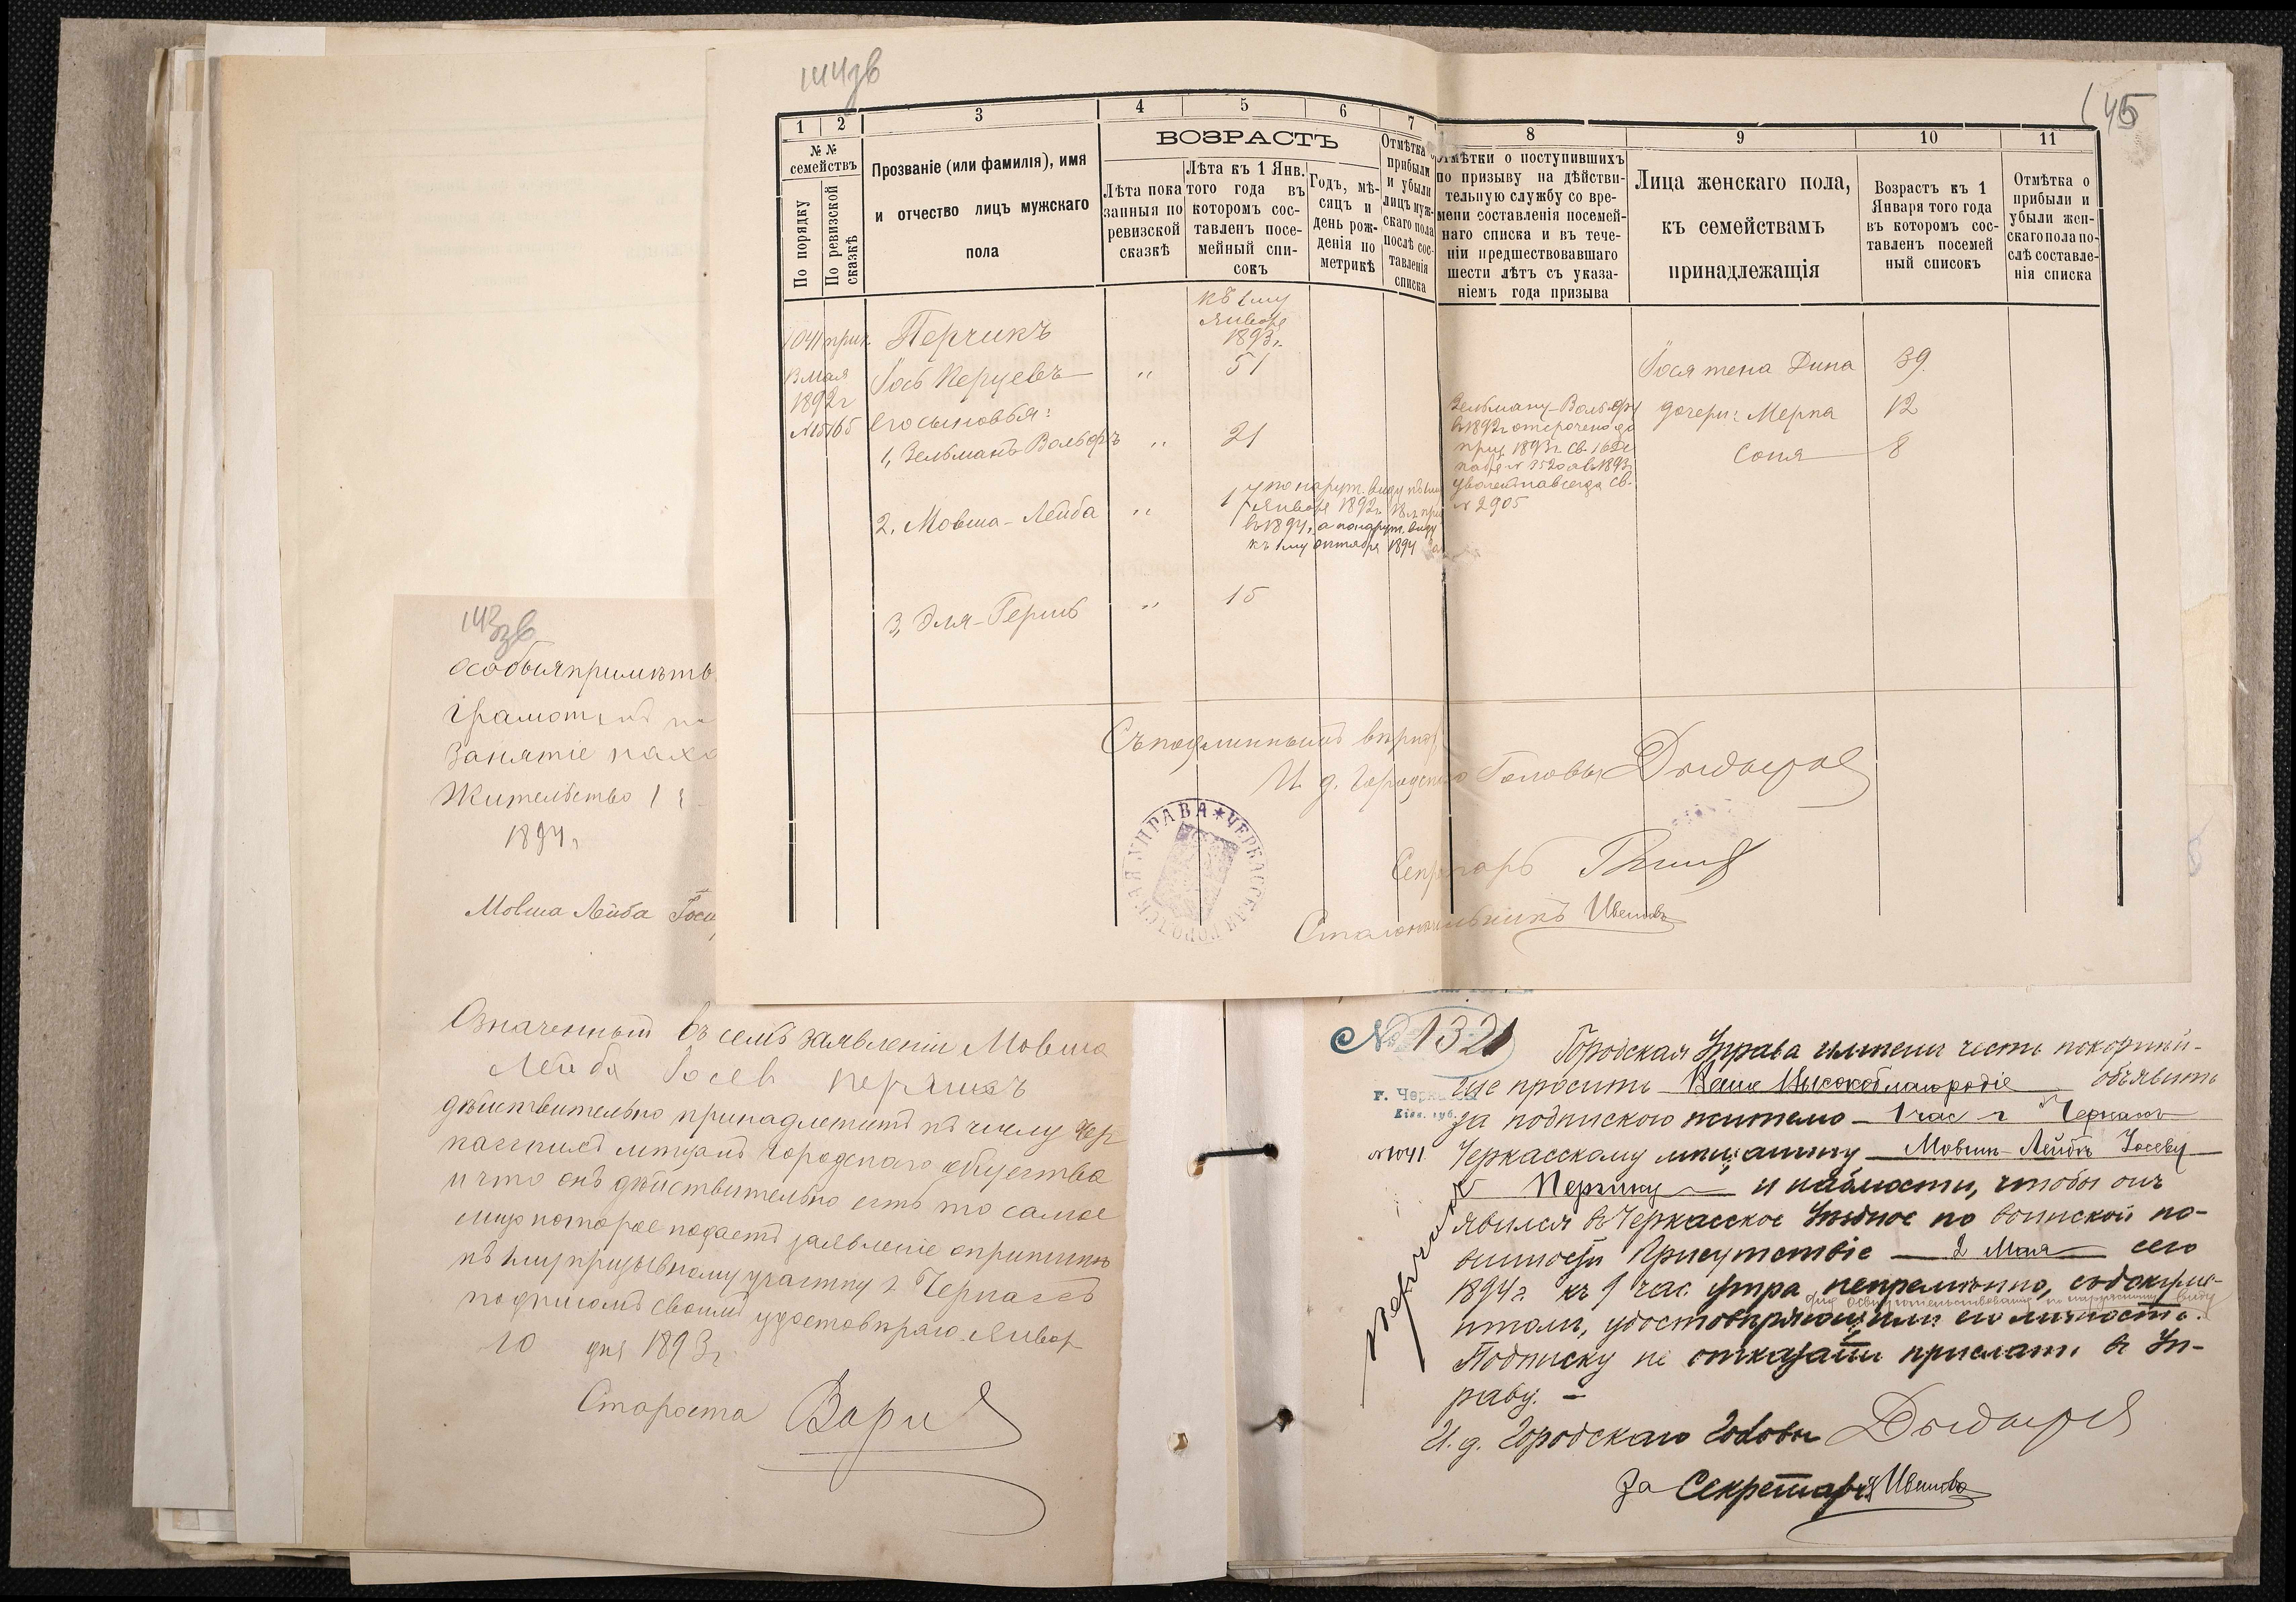 145
1 2 3 4 5 6 7 8 9 10 11
№ №
семействъ
По порядку
По ревизской
сказкѣ
Прозваніе (или фамилія), имя
и отчество лицъ мужскаго
пола
ВОЗРАСТЪ
Лѣта пока
занныя по
ревизской
сказкѣ
Лѣта къ 1 Янв.
того года въ
которомъ сос-
тавленъ посе-
мейный спи-
сокъ
Годъ, мѣ-
сяцъ и
день рож-
денія по
метрикѣ
Отмѣтка о
прибыли
и убыли
лицъ муж-
скаго пола
послѣ сос-
тавленія
списка
Отмѣтки о поступившихъ
по призыву на дѣйстви-
тельную службу со вре-
мени составленія посемей-
наго списка и въ тече-
ніи предшествовавшаго
шести лѣтъ съ указа-
ніемъ года призыва
Лица женскаго пола,
къ семействамъ
принадлежащія
Возрастъ къ 1
Января того года
въ которомъ сос-
тавленъ посемей
ный списокъ
Отмѣтка о
прибыли и
убыли жен-
скаго пола по-
слѣ составле-
нія списка
къ 1му
Январе
1893 г.
1041 прик Перчикъ
13 Мая Іось Перцевъ " 51 Іося жена Дина 39
1892 г
№ 15165 его сыновья:
1, Зельманъ Вольфъ " 21
Зельману-Вольфу
в 1892 г отсрочено до
приз. 1893 г. св.
навсегда св.
№ 2905
дочери: Мерка 12
Соня 8
2, Мовша-Лейба " 17 по наруж. виду къ 1му
Января 1892 г. 18 л. при
в 1894, а по наруж. виду
къ 1му октября 1894
3, Эля-Герш " 15
Съ подлиннымъ вѣрно
И. д. Городского Головы
Секретарь
Столоначальникъ
ЧЕРКАССКАЯ ГОРОДСКАЯ УПРАВА
особыя примѣты
Грамотенъ
Занятіе
Жительство 1
1894 г
Мовша Лейба
Означенный въ семъ заявленіи Мовша
Лейба Іосев Перчикъ
дѣйствительно принадлежитъ къ числу Чер
касскихъ мѣщанъ городского общества
и что онъ дѣйствительно есть то самое
лицо которое подаетъ заявленіе о припискѣ
къ 1му призывному участку г. Черкассъ
подписомъ своимъ удостовѣряю. Январ
10 дня 1893 г.
Староста
№ 1321
г. Черкассы
Кіев. губ.
№ 1041
Перчикъ
Городская Управа имѣетъ честь покорнѣй-
ше просить Ваше Высокоблагородіе объявить
за подпискою жителю 1 час г. Черкассъ
Черкасскому мѣщанину Мовшѣ-Лейбѣ Іосеву
Перчику и наблюсти, чтобы онъ
явился въ Черкасское Уѣздное по воинской по-
винности Присутствіе 2 Мая сего
1894 г. къ 9 час. утра непремѣнно, съ докумен-
для освидѣтельствованія по наружному виду
тами, удостовѣряющими его личность.
Подписку не отказать прислать въ Уп-
раву. —
И. д. Городского Головы
За Секретаря